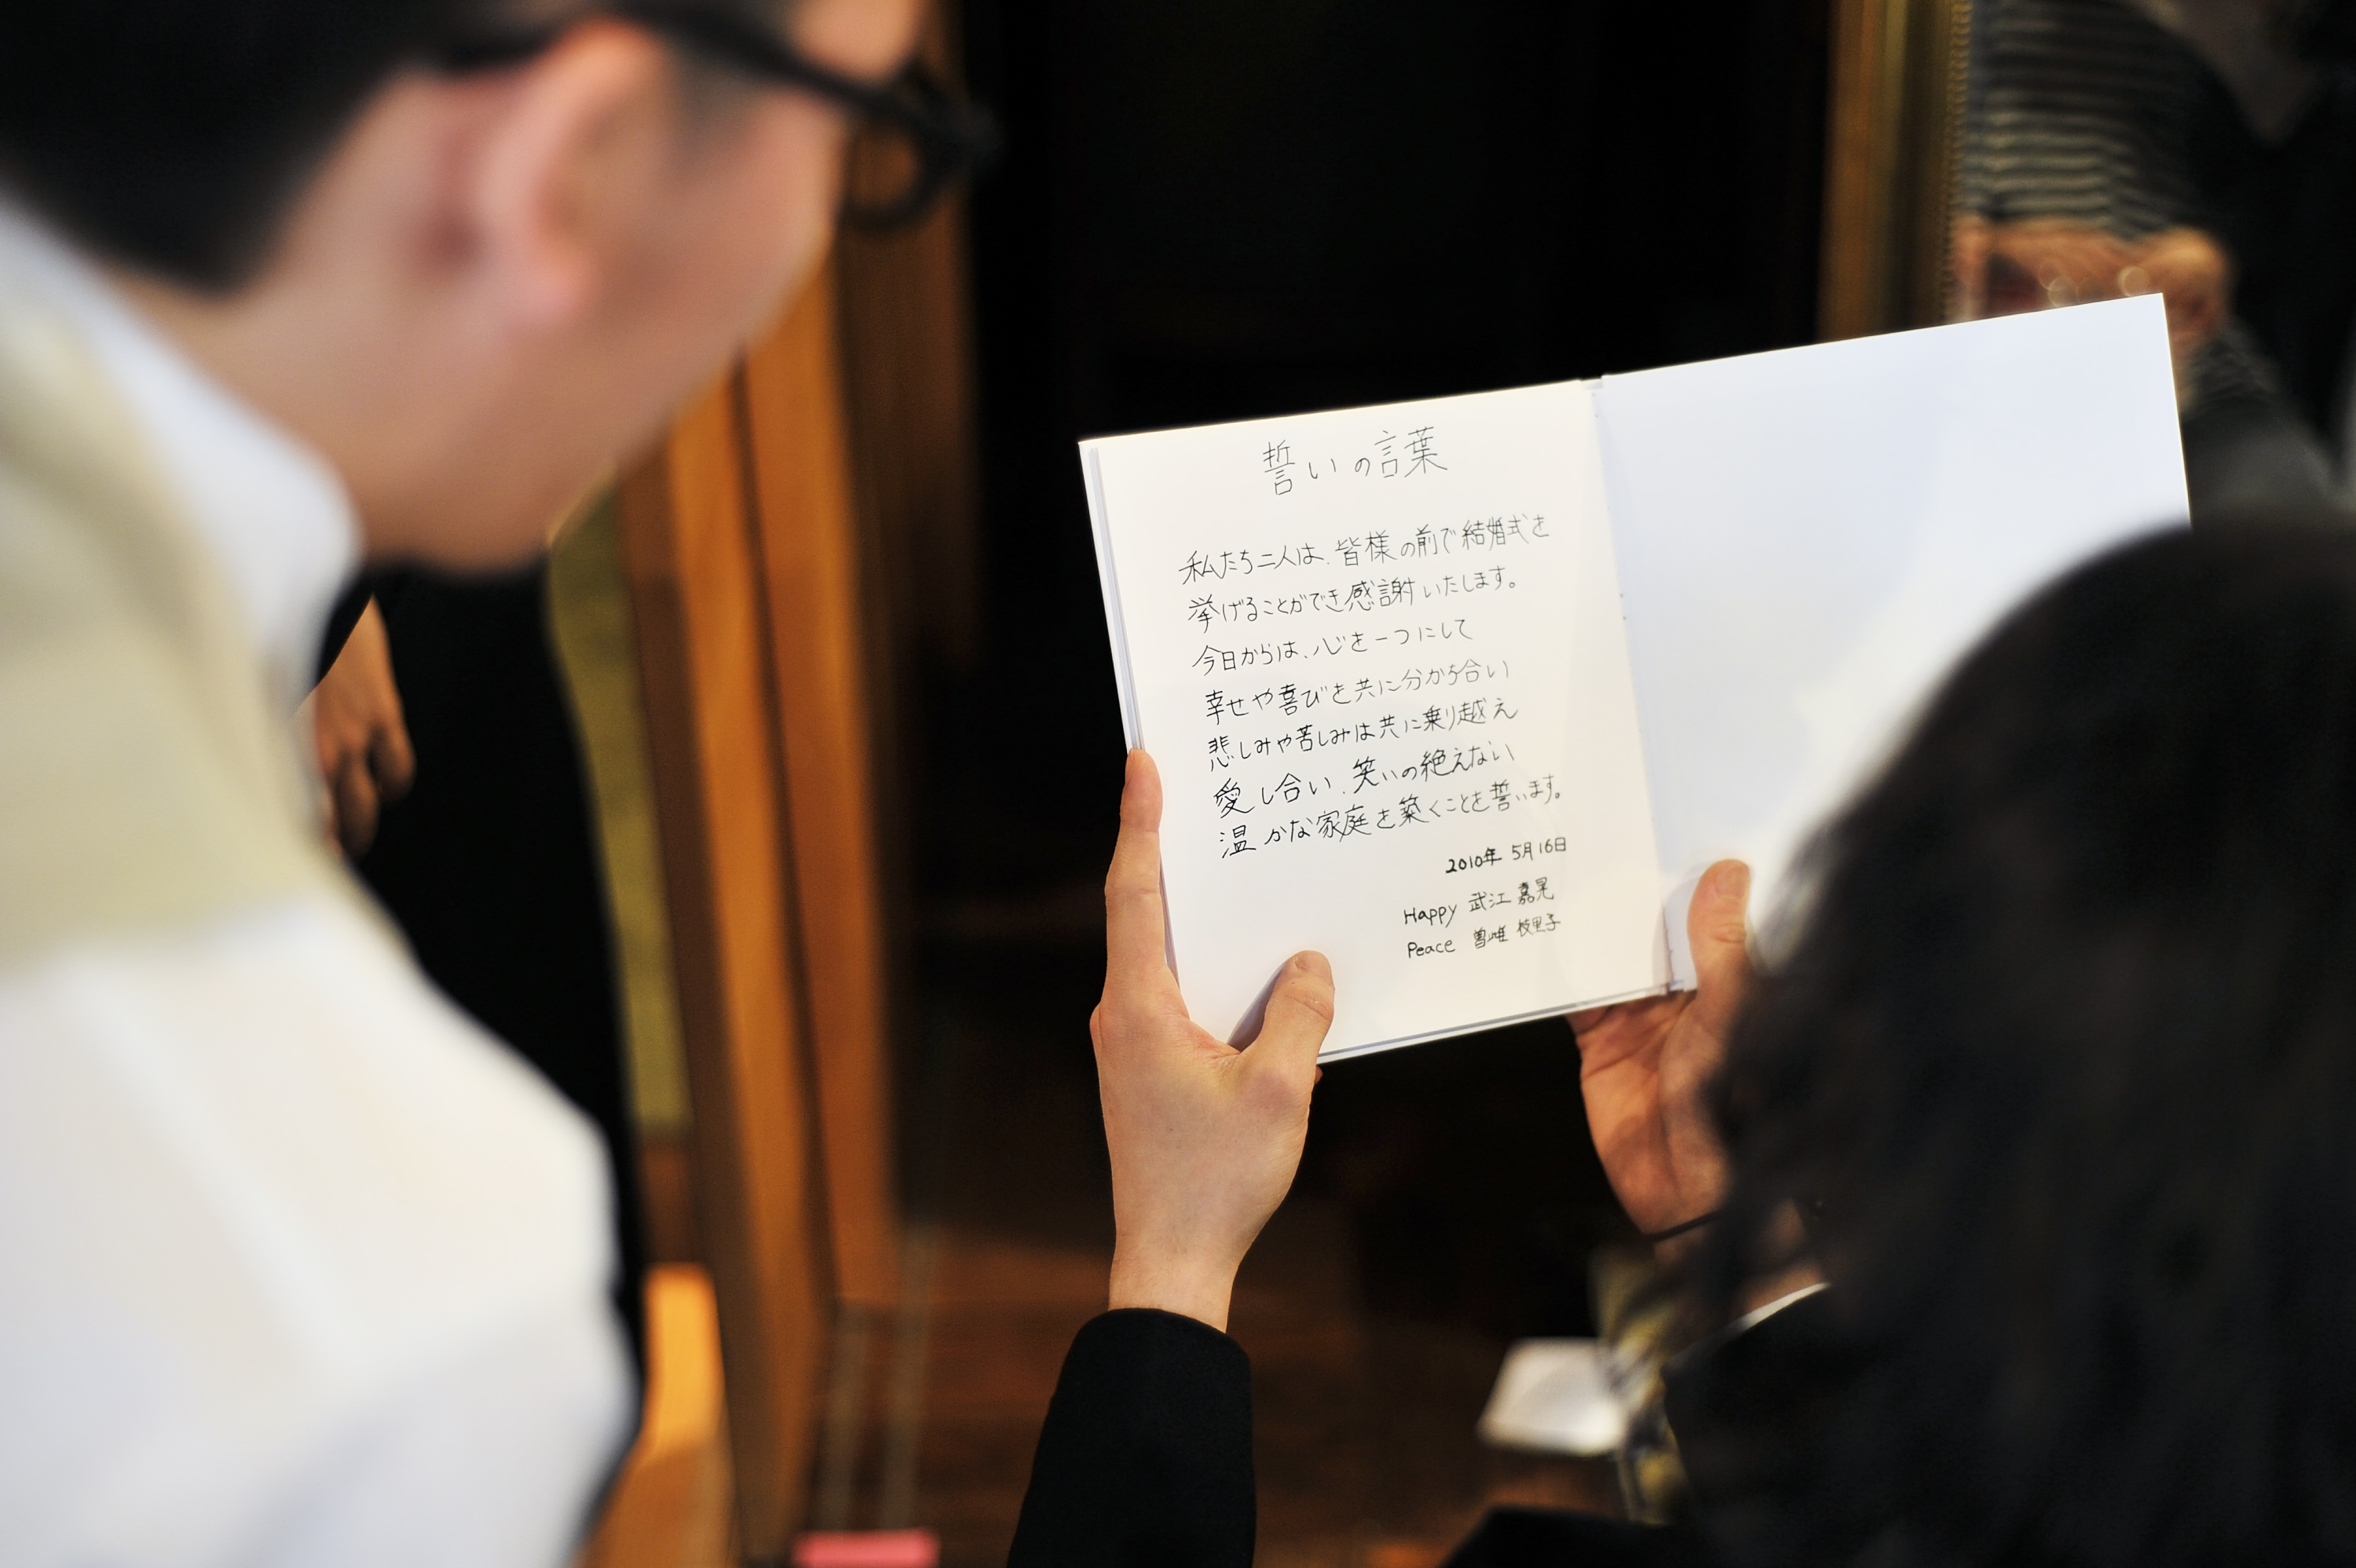 誓いの言葉
私たち二人は、皆様の前で結婚式を
挙げることができ感謝いたします。
今日からは、心を一つにして
幸せや喜びを共に分かち合い
悲しみや苦しみは共に乗り越え
愛し合い、笑いの絶えない
温かな家庭を築くことを誓います。
2010年 5月16日
Happy 武江 嘉晃
Peace 枝里子